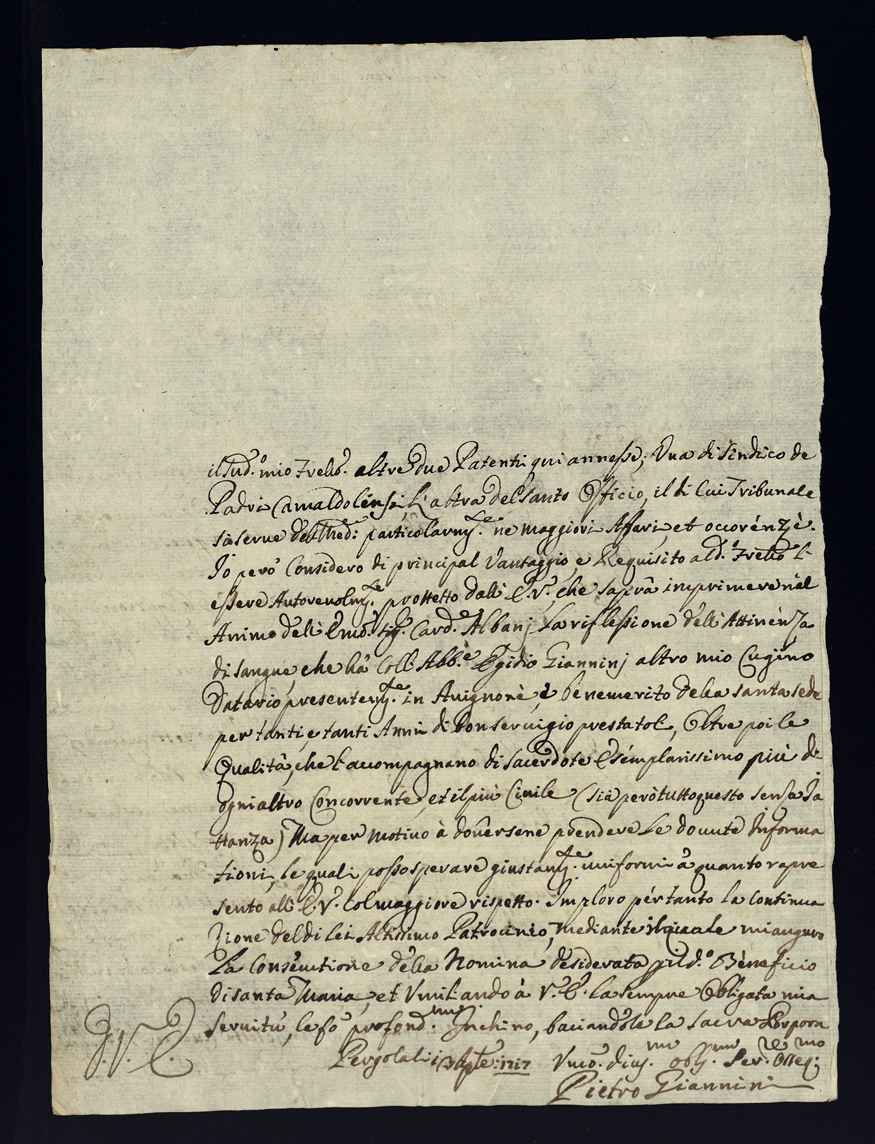 il Sud.º mio Frello. altre due Patenti qui annesse; Una di Sindico de
Padri Camaldolensi, L'altra del Santo Officio, il di Cui Tribunale
si serve del Med.º particolarm.te ne maggiori Affari, et occorenze.
Io però Considero di principal Vantaggio, e Requisito al d.º Frello l'
essere Autorevolm.te protetto dall'E.V., che saprà imprimere nel
Animo dell'Emo. Sig. Card.e Albanj La riflessione dell'Attinenza
di sangue che hà coll'Abb.e Egidio Gianninj altro mio Cugino
Datario presentem.te in Avignone, è benemerito della santa sede
per tanti, e tanti Anni di bon servigio prestatole, Oltre poi le
Qualità, che l'accompagnano di Sacerdote Esemplarissimo più di
ogni altro Concorrente, et il più Civile (sia però tutto questo senza Ja
ttanza) Ma per motivo à doversene prendere Le dovute Informa
tioni, le quali posso sperare giustam.te uniformi à quanto rapre
sento all'E.V. col maggiore rispetto. Imploro pertanto La Continua
zione del di lei Altissimo Patrocinio, mediante il quale mi auguro
La Consecutione della Nomina desiderata pel d.º Beneficio
di santa Maria, et Umiliando à V.E. la sempre Obligata mia
servitù, le fo profond.mo Inchino, baciandole la sacra Porpora
D.V.E.
Pergola li 13 Aple: 1717 Umo. divo. obb.mo Ser.re Osseq.mo
Pietro Giannini